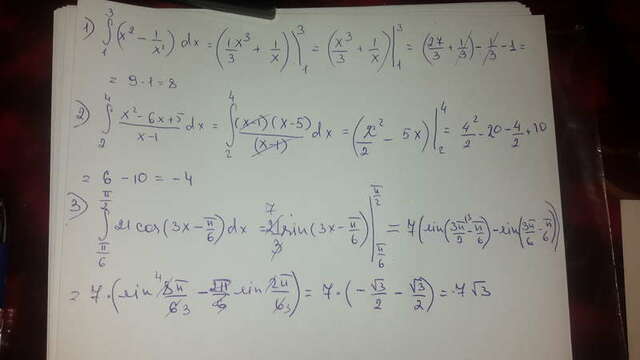 1) ∫₁³ (x² - 1/x²) dx = (1x³/3 + 1/x) |₁³ = (x³/3 + 1/x) |₁³ = (27/3 + 1/3) - 1/3 - 1 =
= 9 - 1 = 8
2) ∫₂⁴ (x² - 6x + 5)/(x - 1) dx = ∫₂⁴ (x-1)(x-5)/(x-1) dx = (x²/2 - 5x) |₂⁴ = 4²/2 - 20 - 4/2 + 10
= 6 - 10 = -4
3) ∫_{π/6}^{π/2} 21 cos(3x - π/6) dx = 21/3 sin(3x - π/6) |_{π/6}^{π/2} = 7 (sin(3π/2 - π/6) - sin(3π/6 - π/6))
= 7 · (sin 8π/6 - sin 2π/6) = 7 · (-√3/2 - √3/2) = -7√3